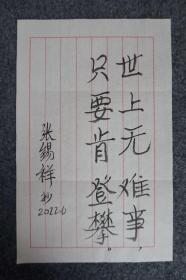 世上无难事，
只要肯登攀。
张锡祥抄
2022.6